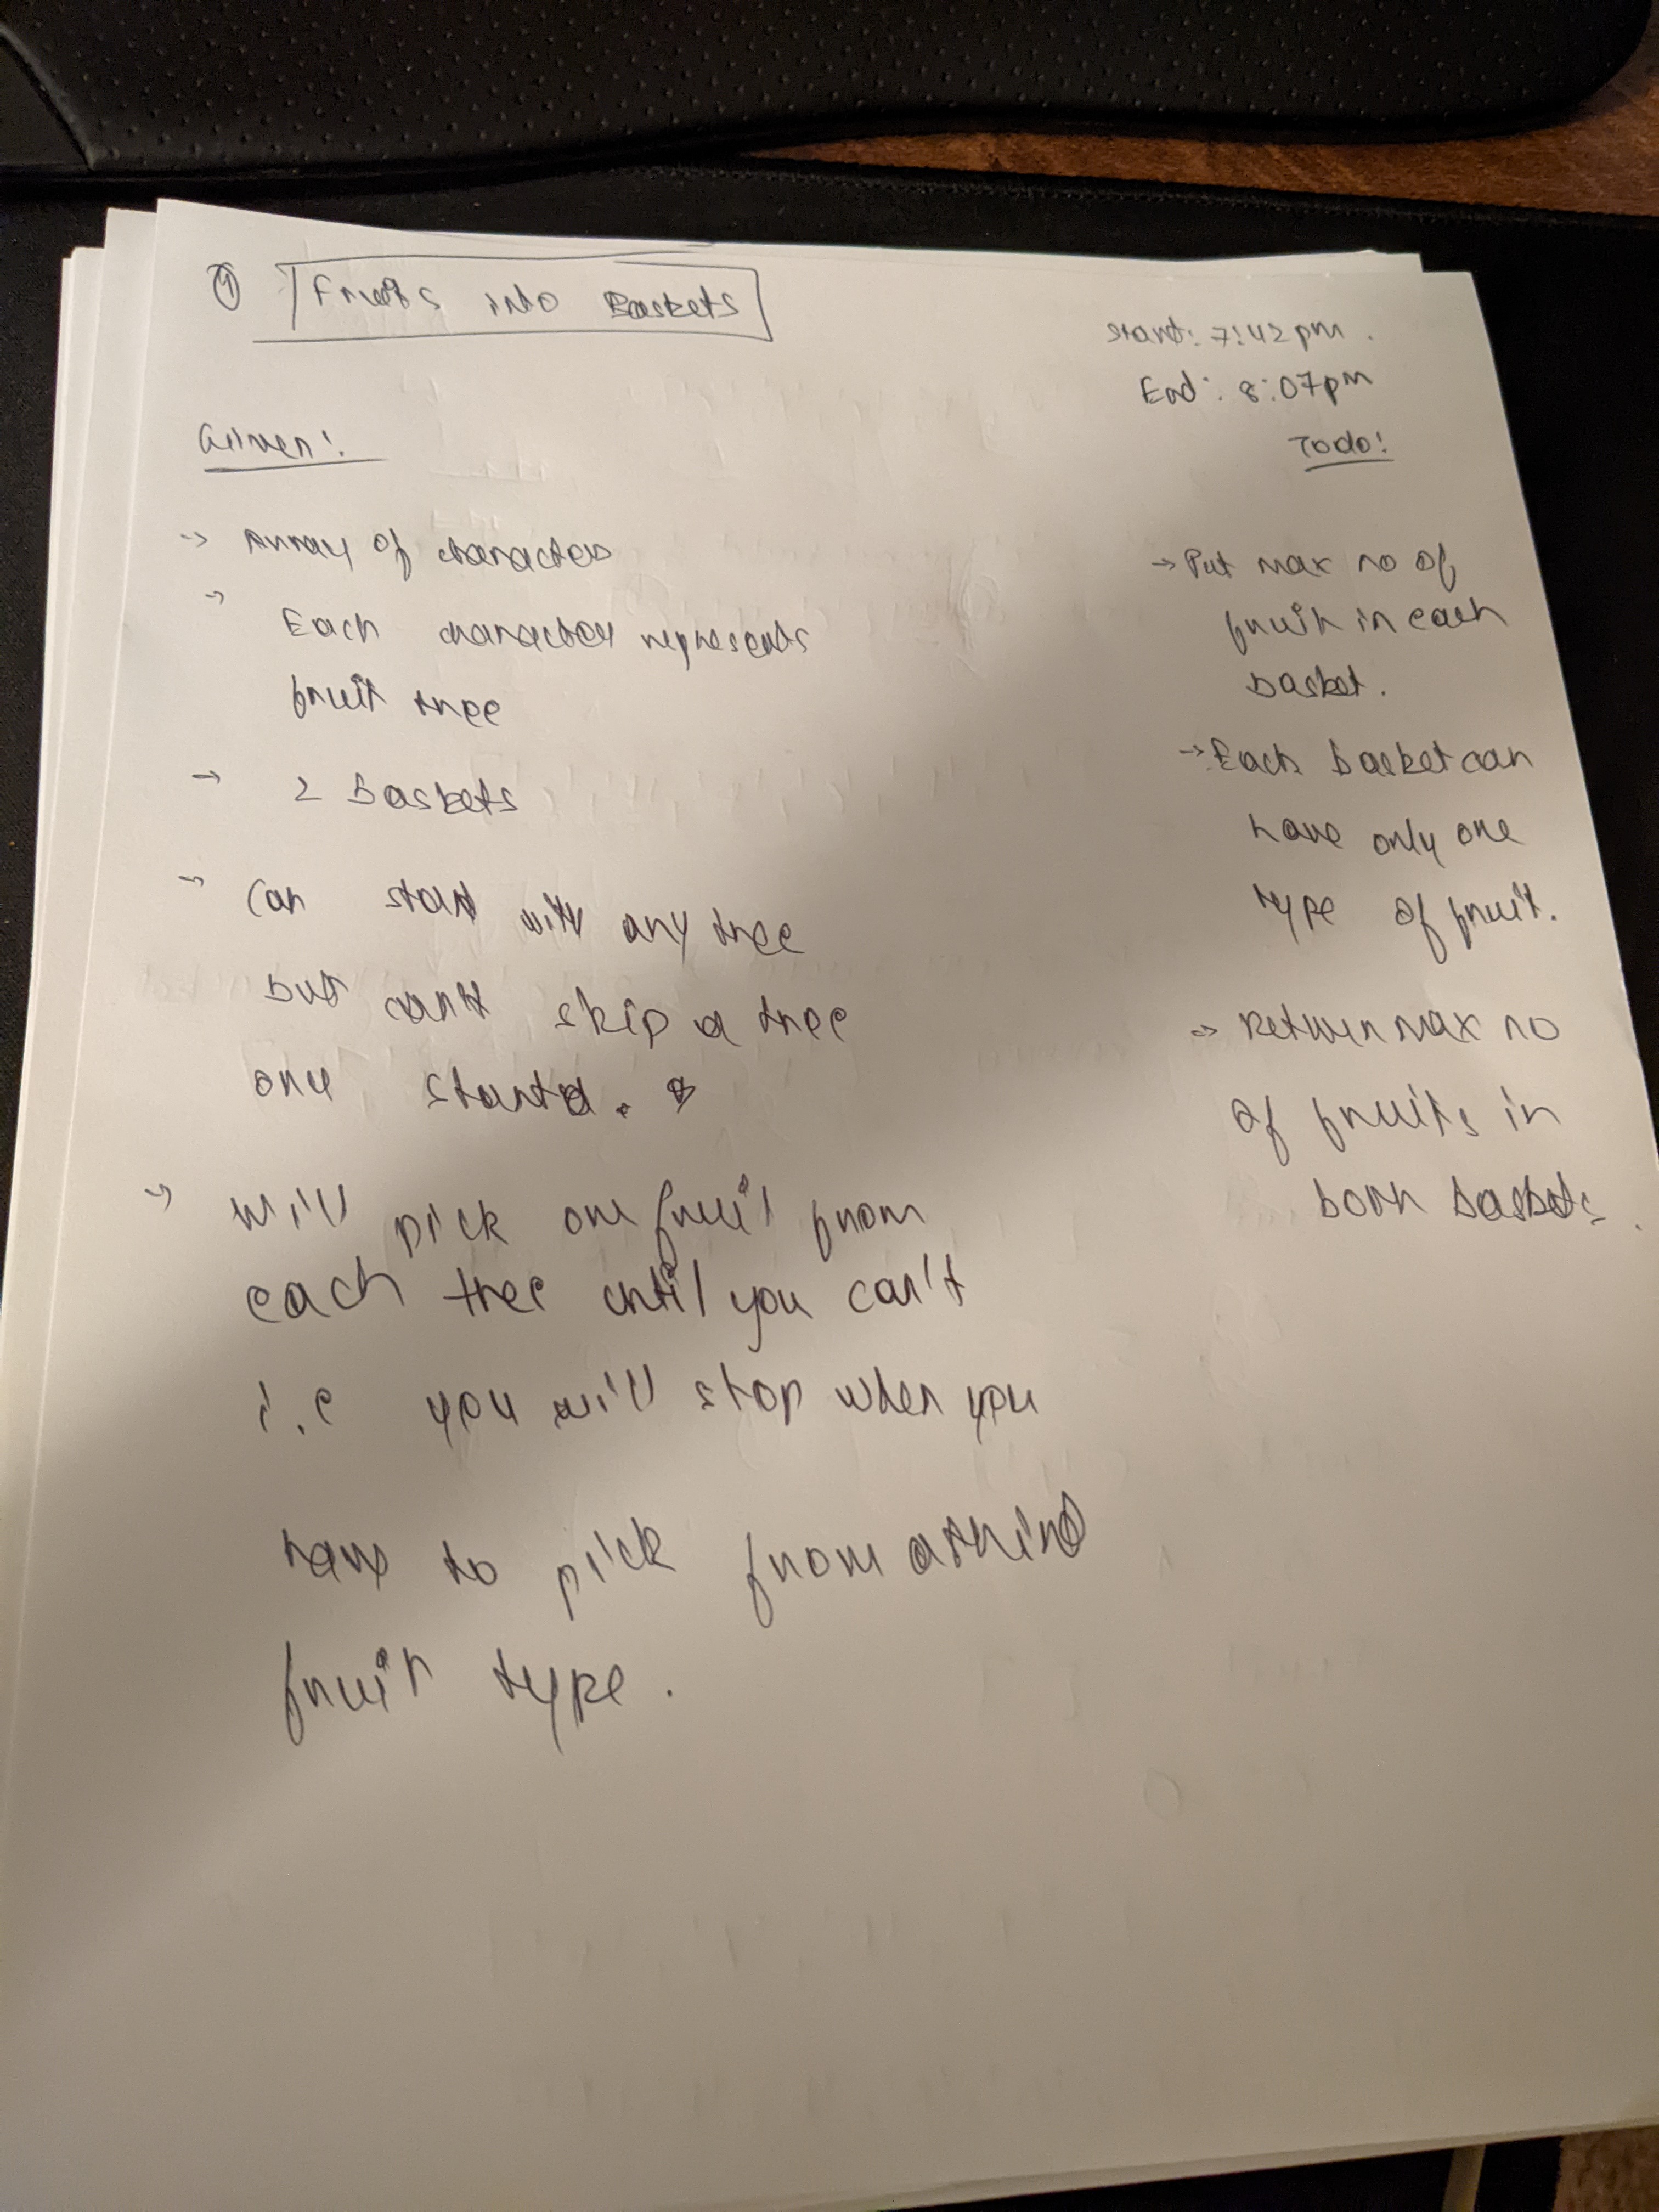 ① Fruits into Baskets
Start: 7:42 pm.
End: 8:07pm
Given:
→ Array of characters
→ Each character represents
fruit tree
→ 2 baskets
→ Can start with any tree
but can't skip a tree
once started.
→ Will pick one fruit from
each tree until you can't
i.e you will stop when you
have to pick from a third
fruit type.
Todo:
→ Put max no of
fruit in each
basket.
→ Each basket can
have only one
type of fruit.
→ Return max no
of fruits in
both baskets.